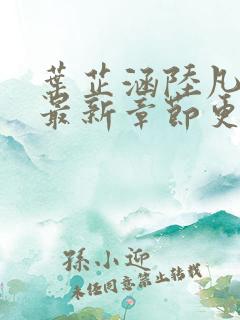 葉芷涵陸凡
最新章節更
孫小迎
未经同意禁止转载